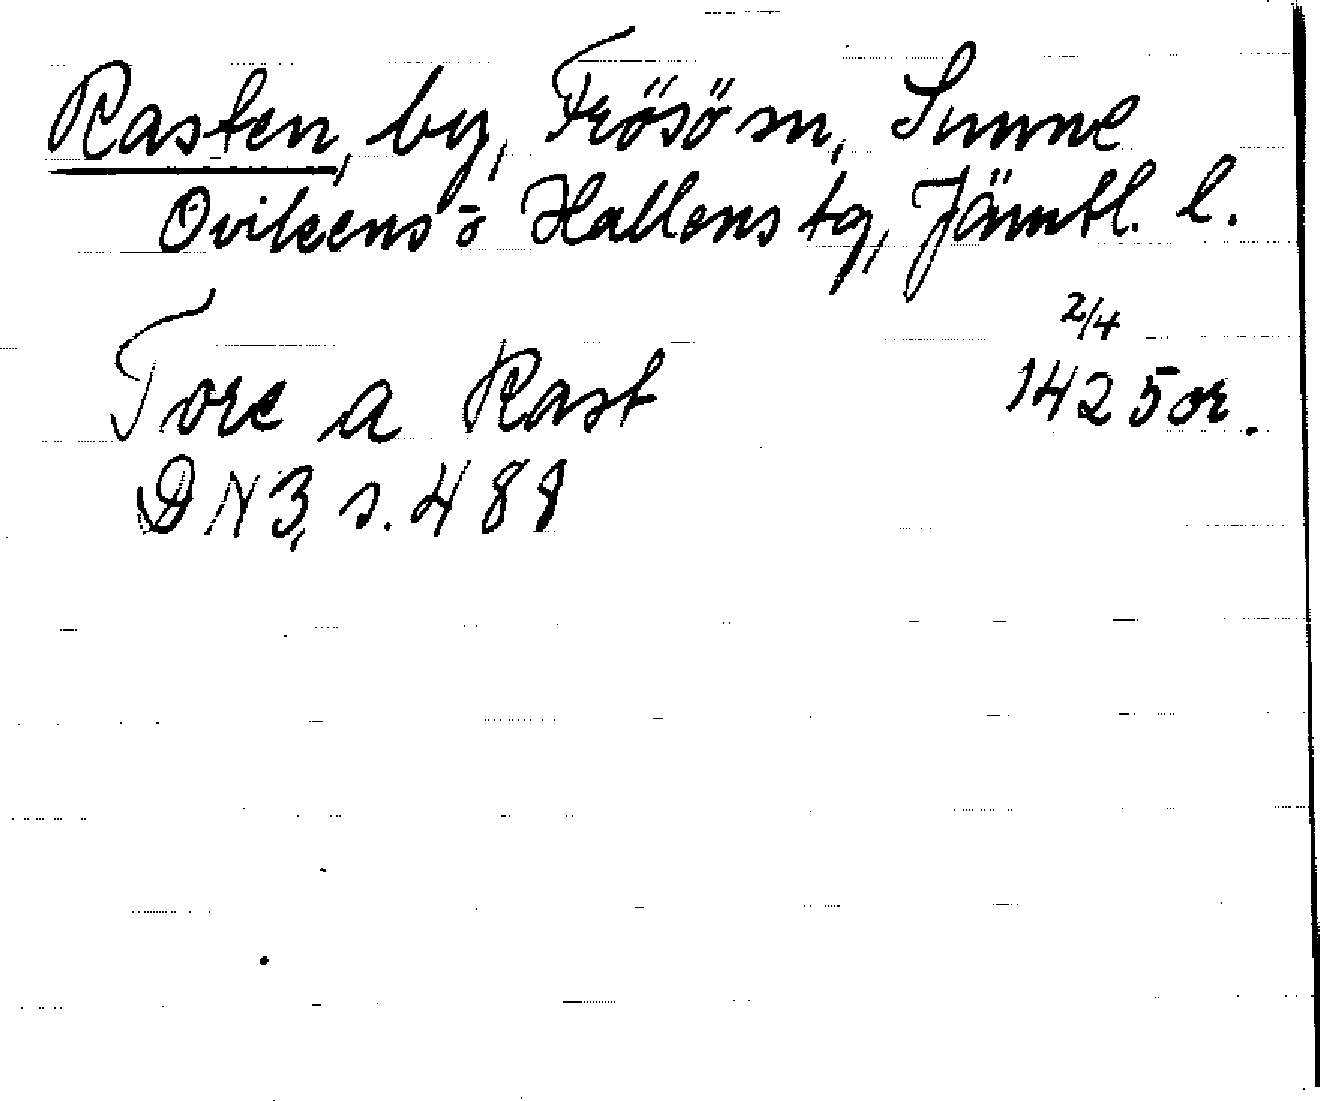 Rasten, by, Frösö sn, Sunne
Ovikens o Hallens tg, Jämtl. l.
2/4
Tore a Rast 1425 or.
DN 3, s. 488